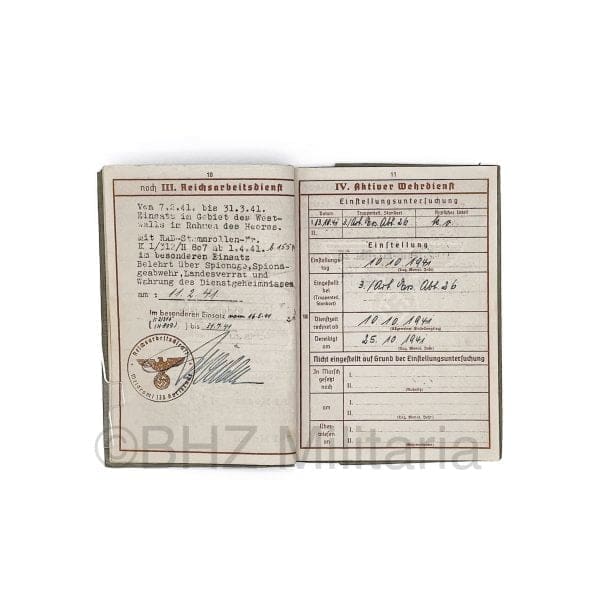 10
noch III. Reichsarbeitsdienst
Von 7.2.41. bis 31.3.41.
Einsatz im Gebiet des West-
walls im Rahmen des Heeres.
mit RAD-Stammrollen-Nr.
K 1/312/H 807 ab 1.4.41.
im besonderen Einsatz
Belehrt über Spionage, Spiona-
geabwehr, Landesverrat und
Wahrung des Dienstgeheimnisses
am: 11.2.41
Im besonderen Einsatz
bis
Reichsarbeitsdienst
11
IV. Aktiver Wehrdienst
Einstellungsuntersuchung
Datum Truppenteil, Standort Ärztliches Urteil
I. k.v.
II.
Einstellung
Einstellungs-
tag 10.10.1941
(Tag, Monat, Jahr)
Eingestellt
bei 3./Art. Ers. Abt. 26
(Truppenteil,
Standort)
Dienstzeit
rechnet ab 10.10.1941
Vereidigt
am 25.10.1941
(Tag, Monat, Jahr)
Nicht eingestellt auf Grund der Einstellungsuntersuchung
In Marsch
gesetzt
nach
I.
II.
am
I.
II.
(Tag, Monat, Jahr)
Über-
wiesen
an
I.
II.
©BHZ Militaria